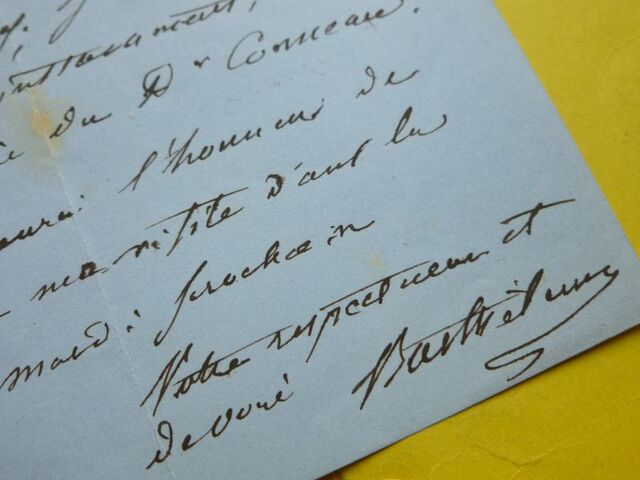 instamment,
du Dr Corneau.
l'honneur de
ma visite d'ant la
mardi prochain
Votre respectueux et
dévoué Barthélemy